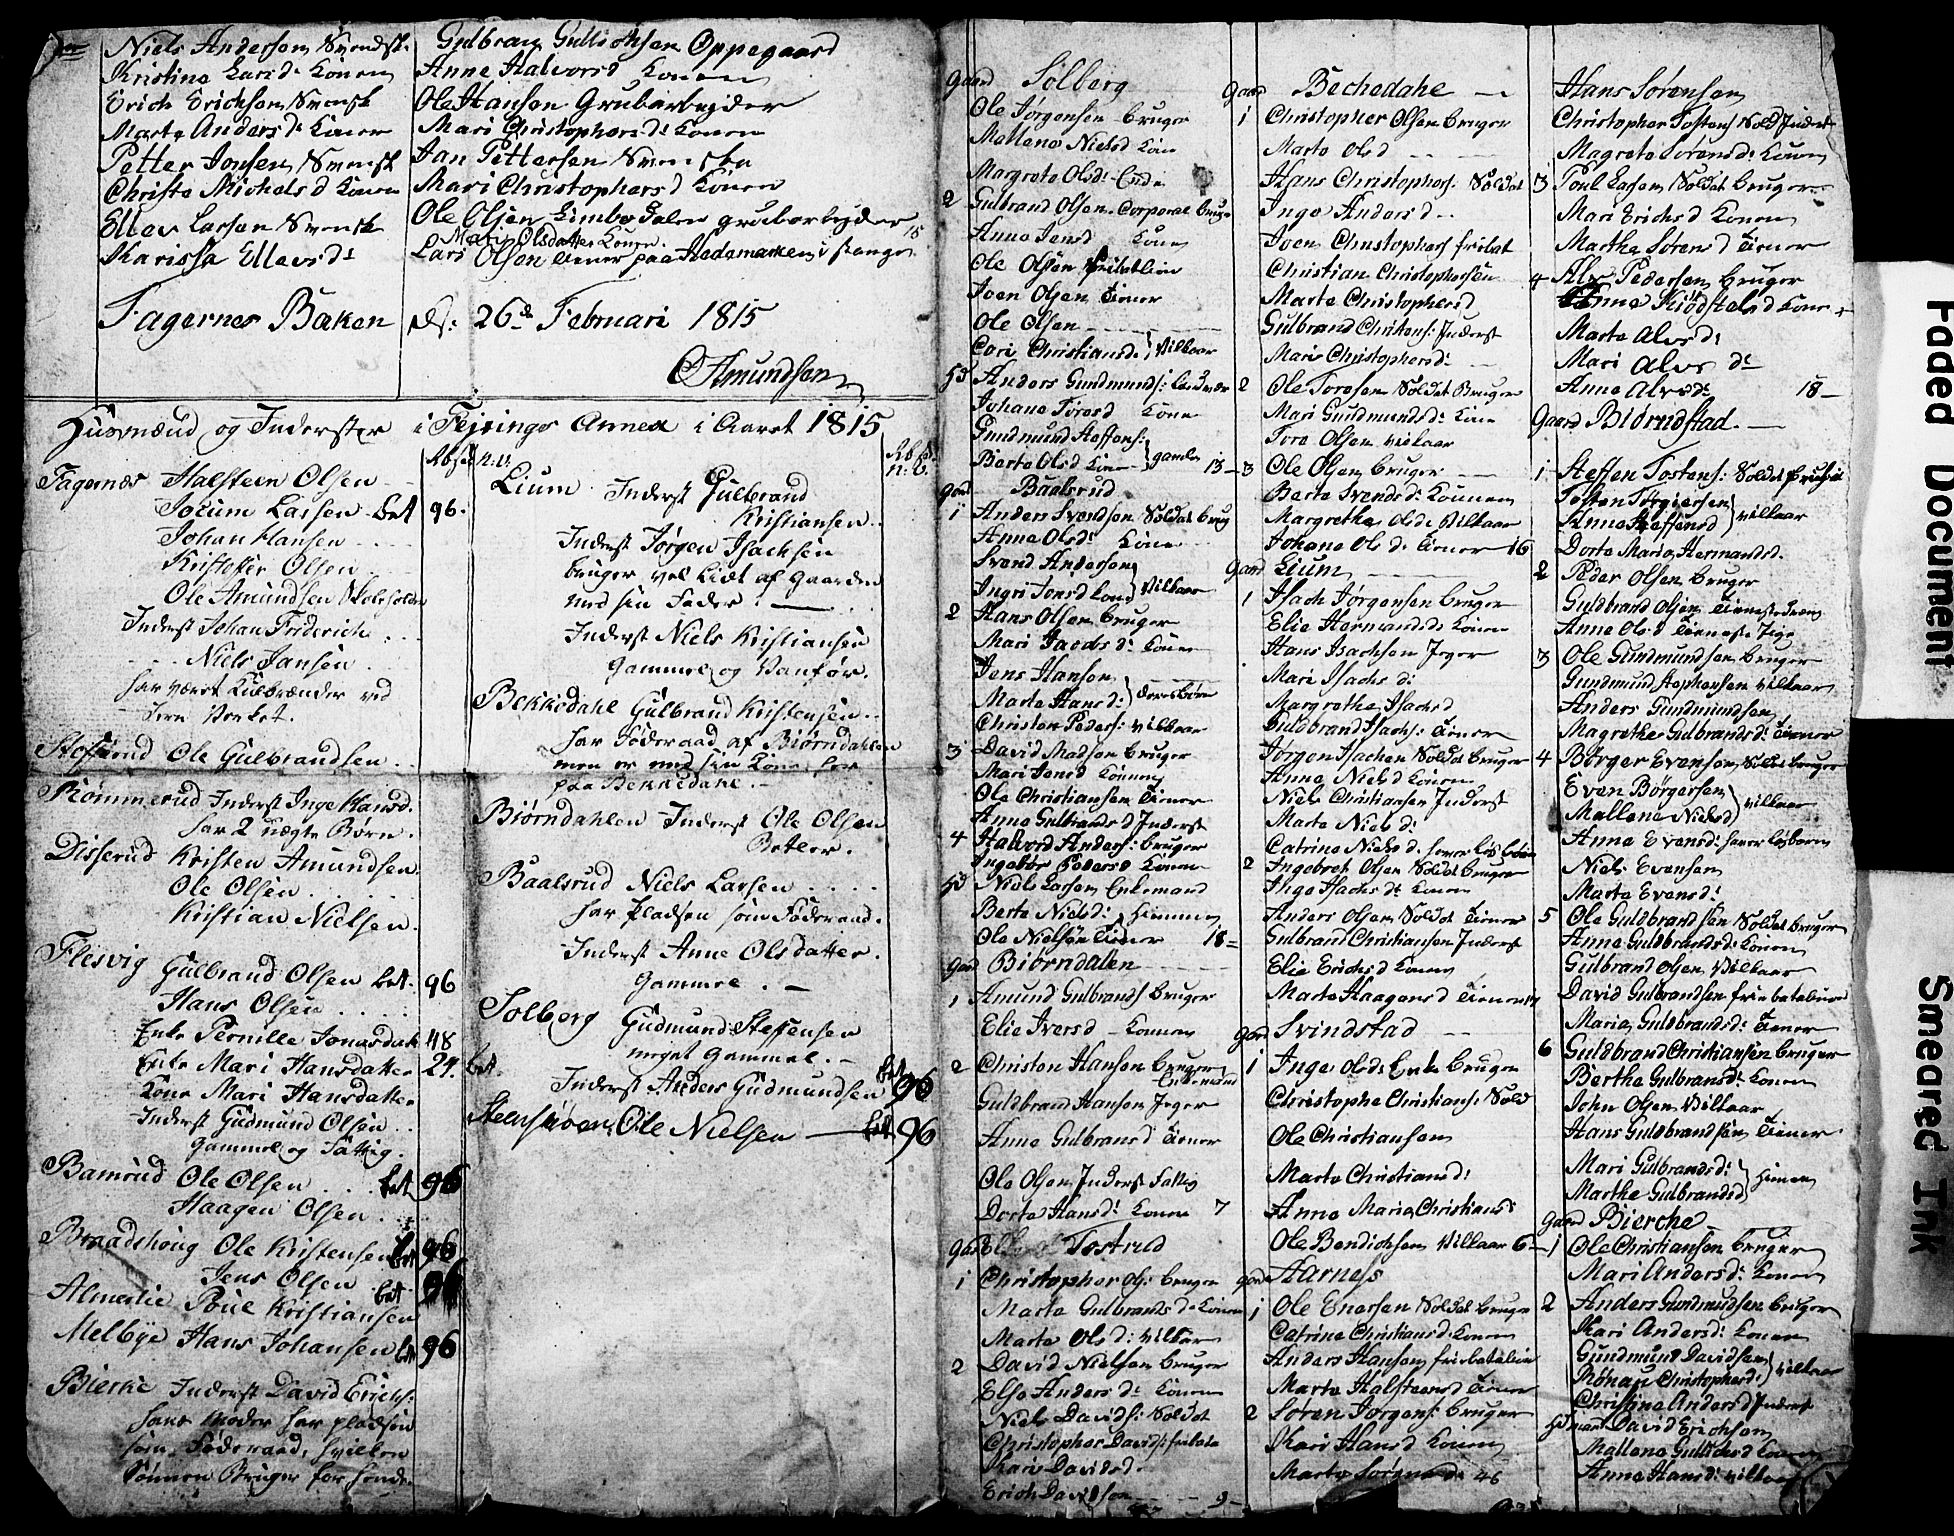 Niels Andersen Svendsk
Kristine Larsd. Konen
Erich Erichsen Svensk
Marte Andersd: Tiener
Petter Jonsen Svensk
Christe Michelsd Konen
Ellev Larsen Svensk
Karissa Ellevsd:
Gulbran Gullichsen Oppegaard
Anne Halvorsd Konen
Ole Hansen Grubarbeyder
Mari Christophersd: Konen
Jan Pettersen Svenske
Mari Christophersd Konen
Ole Olsen Limbodalen grubarbeyder
Mari Olsdatter Konen. 18
Lars Olsen tiener paa Hedemarken i Stange
Fagernes Baken ds: 26de Februari 1815
O Amundsen
Husmænd og Inderster i Fejrings Annex i Aaret 1815
Fagernæs Halsteen Olsen
Jocum Larsen bet 96.
Johan Hansen
Kristoffer Olsen
Ole Amundsen Skoleholder
Inderst Johan Friderich
Niels Jansen
har været Kulbrænder ved
Jern Verket.
Steffarud Ole Gulbrandsen
Rømmerud Inderst Inge Hansd.
har 2 uægte Børn.
Disserud Kristen Amundsen
Ole Olsen
Kristian Nielsen.
Flesvig Gulbrand Olsen bet. 96
Hans Olsen
Enke Pernille Jonasdatr 48
Enke Mari Hansdatter 24. bet.
Kone Mari Hansdatter
Inderst Gudmund Olsen
gammel og Fattig.
Bamrud Ole Olsen bet 96
Haagen Olsen
Braadshoug Ole Kristensen bet 96
Jens Olsen bet 96
Almerlie Poul Kristiansen
Melbye Hans Johansen bet 96
Bierke Inderst David Erichs:
hans Moder har pladsen
som Føderaad, hvilken
Sønnen Bruger for hende.
Lium Inderst Gulbrand
Kristiansen
Inderst Jørgen Isachsen
bruger vel Lidt af Gaarden
med sin Fader.
Inderst Niels Kristiansen
Gammel og Vanfør.
Bekkedahl Gulbrand Kristensen
har Føderaad af Biørndahlen
men er med sin Kone her
paa Bekkedahl.
Biørndahlen Inderst Ole Olsen
Betler.
Baalsrud Niels Larsen
har pladsen som Føderaad.
Inderst Anne Olsdatter.
Gammel.
Solberg Gudmund Steffensen
meget Gammel.
Inderst Anders Gudmundsen bet 96
Ole Nielsen bet 96
Gaard Solberg
Ole Jørgensen bruger
Mallene Nielsd Kone
Margrete Olsd: Enke
2 Gulbrand Olsen Corporal bruger
Anne Jensd Konen
Ole Olsen
Joen Olsen Tiener
Ole Olsen
Cari Christiansd: } Vilkaar
Hd Anders Gundmunds:
Johane Toresd Kone
Gundmund Steffens:
Berte Olsd Kone } gamle 13
Gaard Baalsrud
1 Anders Svendsen Soldat brug
Anne Olsd: Kone
Svend Andersen
Ingri Jonsd Kone } Vilkaar
2 Hans Olsen bruger
Mari Jacobsd: Konen
Jens Hansen
Marte Hansd: } deres børn
Christen Peders: Vilkaar
3 David Madsen bruger
Mari Jensd Konen
Ole Christiansen Tiener
Anne Gulbrandsd Inderst
4 Halvord Anders: bruger
Ingebor Pedersd Konen
Hd Niels Larsen Enkemand
Berte Nielsd: Hiemme
Ole Nielsen Tiener 18
Gaard Biørndalen
1 Amund Gulbrands bruger
Elie Iversd Konen
2 Christen Hansen bruger
Enkemand
Guldbrand Hansen Jeger
Anne Gulbransd Tiener
Ole Olsen Inderst Fattig
Dorte Hansd: Konen 7
Gaard Tostrud
1 Christopher Ols: bruger
Marte Gulbrandsd: Konen
Marte Olsd: Vilkaar
2 David Nielsen bruger
Else Andersd: Konen
Niels Davids: Soldat
Christopher Davids:
Kari Davidsd.
Erich Davidsen 9
Gaard Bechedahl
1 Christopher Olsen bruger
Marte Olsd
Hans Christophers: Soldat
Inge Andersd
Joen Christophers fribat
Christian Christophersen
Marte Christophersd
Gulbrand Christens: Inderst
Mari Christophersd:
2 Ole Toresen Soldat Bruger
Mari Gundmundsd: Kone
Tore Olsen Vilkaar
3 Ole Olsen bruger
Berte Svendsd: Konen
Margrethe Olsd: Vilkaar
Johane Olsd: Tiener 16
Gaard Lium
1 Isach Jørgensen bruger
Elie Hermandsd: Konen
Hans Isachsen Jeger
Mari Isachsd:
Margrethe Isachsd
Guldbrand Isachs: Tiener
Jørgen Isachsen Soldat Bruger
Anne Nielsd Konen
Niels Christiansen Inderst
Marte Nielsd:
Catrine Nielsd:
2 Ingebret Olsen Soldat bruger
Inge Isachsd: Konen
Anders Olsen Soldat Tiener
Gulbrand Christiansen Inderst
Elie Erichsd Konen
Marte Haagensd Tiener
Gaard Svindstad
1 Inge Olsd: Enke bruger
Christophe Christians: Sold
Ole Christiansen
Marte Christiansd:
Anne Maria Christiansd
Ole Bendichsen Vilkaar 6
Gaard Harness
1 Ole Enersen Soldat bruger
Catrine Christiansd: Konen
Anders Hansen fribatalion
Marte Halsteensd Tiener
2 Søren Jørgens: bruger
Kari Hansd Konen
Marte
Hans Sørensen
Christopher Tostens Sold Inderst
Magrete Sørensd: Konen
3 Poul Larsen Soldat bruger
Mari Erichsd Konen
Marthe Sørensd Tiener
4 Alv Pedersen bruger
Anne Kiødstelsd Kone
Marte Alvsd:
Mari Alvsd:
Anne Alvsd: 18
Gaard Biørndstad.
1 Steffen Tostens: Soldat bruger
Tosten Torgiersen
Anne Steffensd } Vilkaar
Dorte Maria Hermandsd.
2 Peder Olsen bruger
Guldbrand Olsen Tieneste dreng
Anne Olsd Tieneste Pige
3 Ole Gundmundsen bruger
Gundmund Stephensen Vilkaar
Anders Gundmundsen
Magrethe Gulbrandsd: Tiener
4 Børger Evensen Soldat bruger
Even Børgersen
Mallene Nielsd } Vilkaar
Anne Evensd:
Niels Evensen
Marte Evensd:
5 Ole Guldbrandsen Soldat bruger
Anne Guldbrandsd: Konen
Gulbrand Olsen Vilkaar
David Gulbrandsen fribatalion
Maria Guldbrandsd: Tiener
6 Guldbrand Christiansen bruger
Berthe Gulbransd: Konen
John Olsen Vilkaar
Hans Guldbrandsen Tiener
Mari Gulbrandsd:
Marthe Gulbrandsd } Hiemme
Gaard Bierche
1 Ole Christiansen bruger
Mari Andersd: Konen
2 Anders Gundmundsen bruger
Kari Andersd: Konen
Gundmund Davidsen
Rønau Christophersd: } Vilkaar
Christine Andersd Inderst
Hd mand David Erichsen
Mallene Gullichsd Konen
Anne Hansd: Vilkaar
Faded Document
Smeared Ink